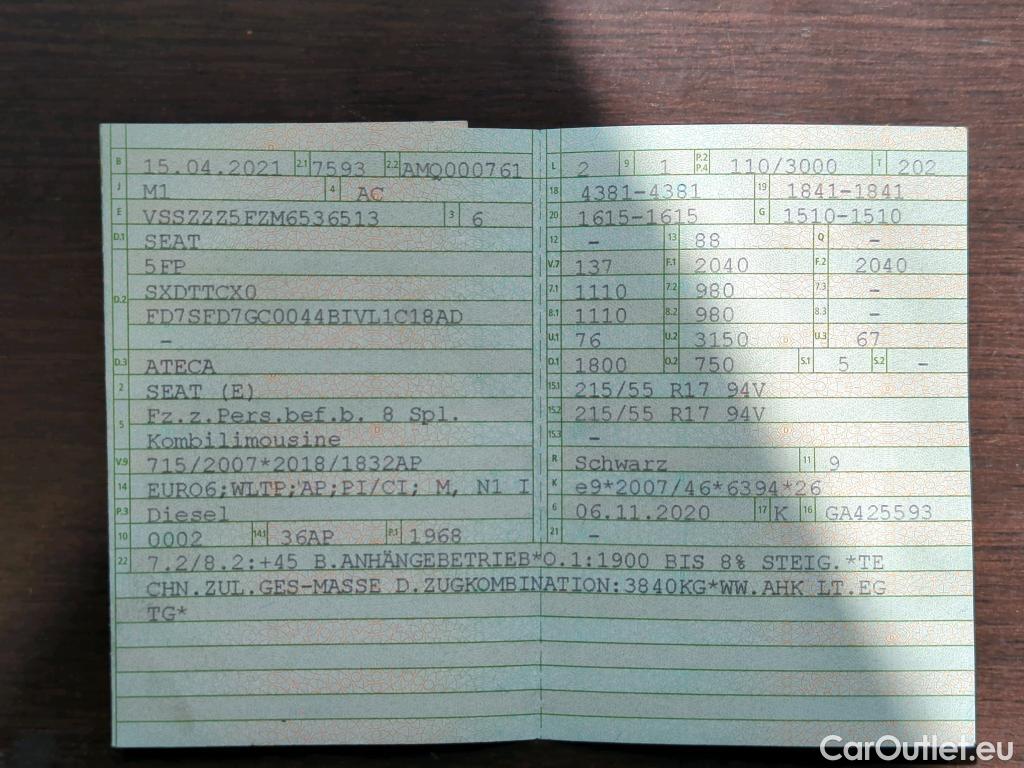 B 15.04.2021 2.1 7593 2.2 AMQ000761
J M1 4 AC
E VSSZZZ5FZM6536513 3 6
D.1 SEAT
5FP
D.2 SXDTTCX0
FD7SFD7GC0044BIVL1C18AD
-
D.3 ATECA
2 SEAT (E)
5 Fz.z.Pers.bef.b. 8 Spl.
Kombilimousine
V.9 715/2007*2018/1832AP
14 EURO6;WLTP;AP;PI/CI; M, N1 I
P.3 Diesel
10 0002 14.1 36AP P.1 1968
L 2 9 1 P.2 P.4 110/3000 T 202
18 4381-4381 19 1841-1841
20 1615-1615 G 1510-1510
12 - 13 88 Q -
V.7 137 F.1 2040 F.2 2040
7.1 1110 7.2 980 7.3 -
8.1 1110 8.2 980 8.3 -
U.1 76 U.2 3150 U.3 67
O.1 1800 O.2 750 S.1 5 S.2 -
15.1 215/55 R17 94V
15.2 215/55 R17 94V
15.3 -
R Schwarz 11 9
K e9*2007/46*6394*26
6 06.11.2020 17 K 16 GA425593
21 -
22 7.2/8.2:+45 B.ANHÄNGEBETRIEB*O.1:1900 BIS 8% STEIG.*TE
CHN.ZUL.GES-MASSE D.ZUGKOMBINATION:3840KG*WW.AHK LT.EG
TG*
CarOutlet.eu